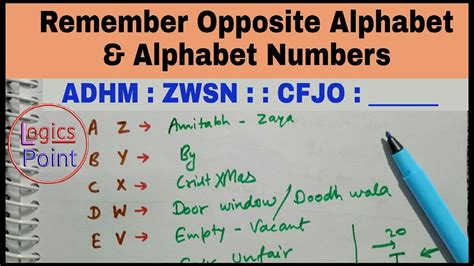 Remember Opposite Alphabet
& Alphabet Numbers
ADHM : ZWSN : : CFJO : _____
Logics
Point
A Z → Amitabh - Zaya
B Y → By
C X → Crist XMas
D W → Door window / Doodh wala
E V → Empty - Vacant
Unfair
20
T